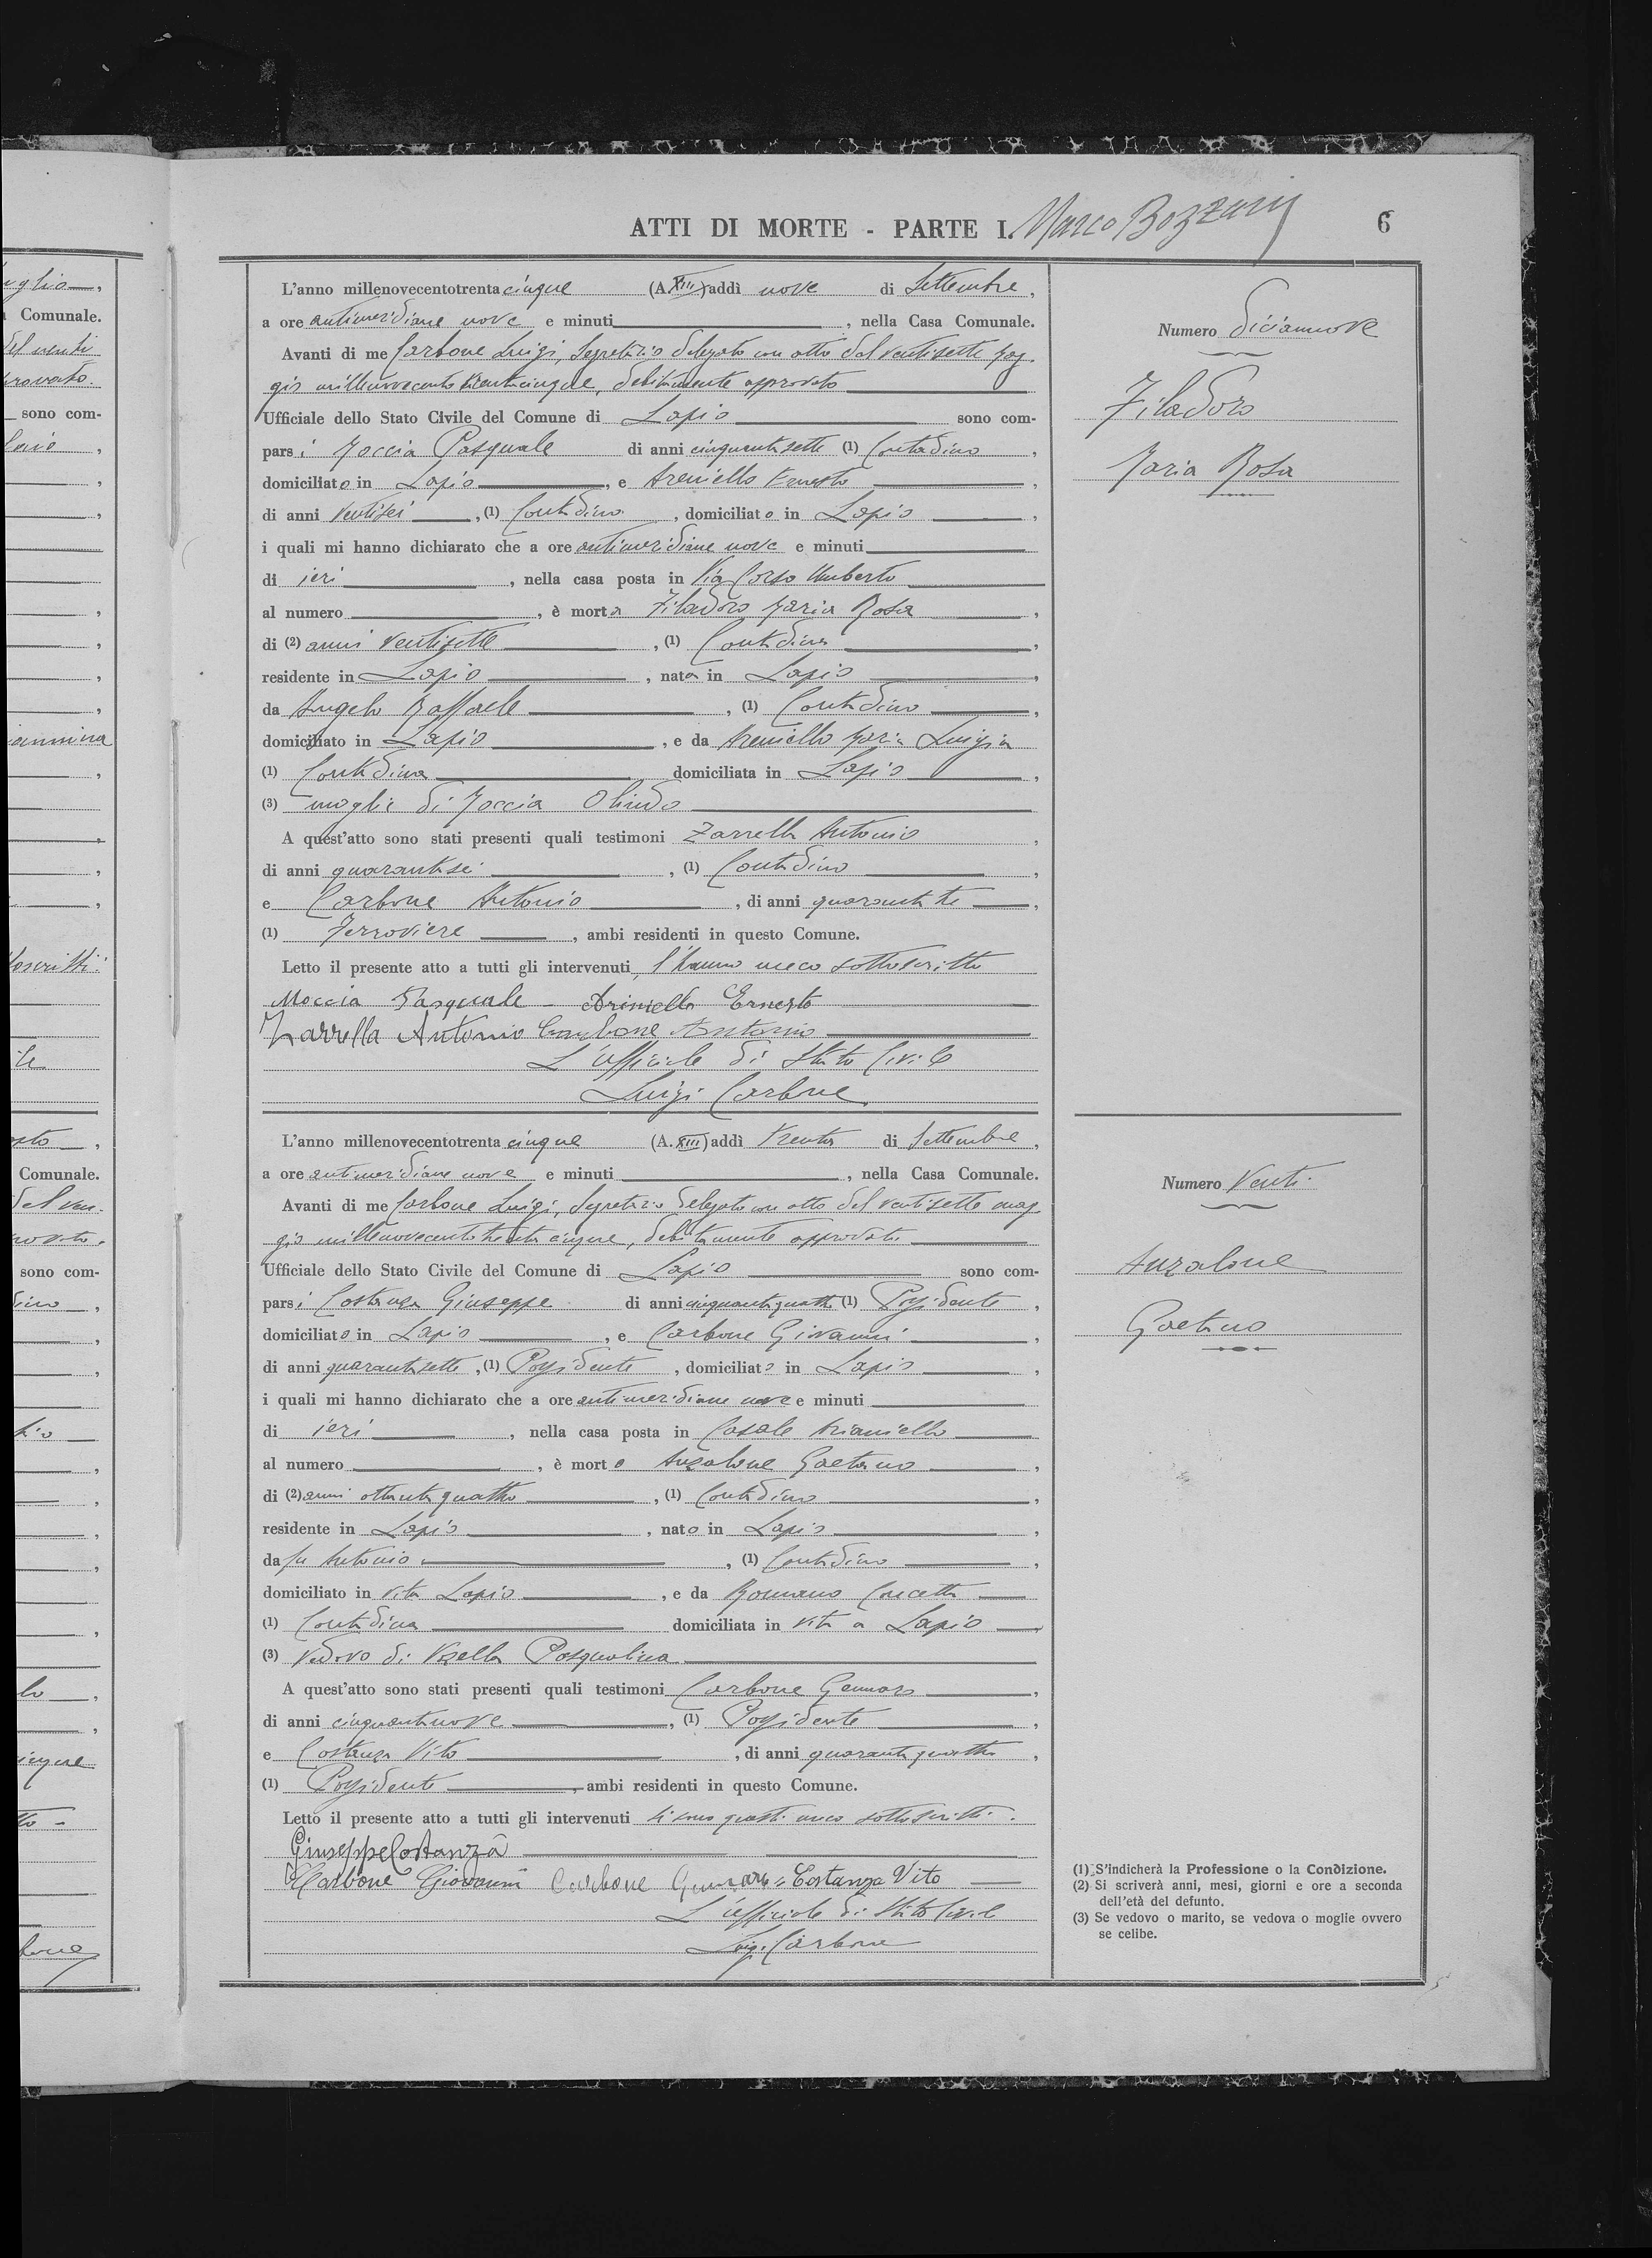 ATTI DI MORTE - PARTE I. Marco Bozzaris 6
L'anno millenovecentotrenta cinque (A. XIII) addì nove di Settembre,
a ore antimeridiane nove e minuti, nella Casa Comunale.
Avanti di me Carbone Luigi, Segretario delegato con atto del ventisette mag-
gio millenovecentotrentacinque, debitamente approvato
Ufficiale dello Stato Civile del Comune di Lapio sono com-
parsi Moccia Pasquale di anni cinquantasette (1) Contadino,
domiciliato in Lapio, e Areniello Ernesto,
di anni ventisei, (1) Contadino, domiciliato in Lapio,
i quali mi hanno dichiarato che a ore antimeridiane nove e minuti
di ieri, nella casa posta in Via Corso Umberto
al numero, è morta Filadoro Maria Rosa,
di (2) anni ventisette, (1) Contadina,
residente in Lapio, nata in Lapio,
da Angelo Raffaele, (1) Contadino,
domiciliato in Lapio, e da Areniello Maria Luigia
(1) Contadina domiciliata in Lapio,
(3) moglie di Moccia Olindo
A quest'atto sono stati presenti quali testimoni Zarrella Antonio,
di anni quarantasei, (1) Contadino,
e Carbone Antonio, di anni quarantatre,
(1) Ferroviere, ambi residenti in questo Comune.
Letto il presente atto a tutti gli intervenuti l'hanno meco sottoscritto
Moccia Pasquale - Ariniello Ernesto
Zarrella Antonio Carbone Antonio
L'Ufficiale di Stato Civile
Luigi Carbone
Numero diciannove
Filadoro
Maria Rosa
L'anno millenovecentotrenta cinque (A. XIII) addì trenta di Settembre,
a ore antimeridiane nove e minuti, nella Casa Comunale.
Avanti di me Carbone Luigi, Segretario delegato con atto del ventisette mag-
gio millenovecentotrentacinque, debitamente approvato
Ufficiale dello Stato Civile del Comune di Lapio sono com-
parsi Costanza Giuseppe di anni cinquantaquattro (1) Possidente,
domiciliato in Lapio, e Carbone Giovanni,
di anni quarantasette, (1) Possidente, domiciliato in Lapio,
i quali mi hanno dichiarato che a ore antimeridiane nove e minuti
di ieri, nella casa posta in Casale Arianiello
al numero, è morto Anzalone Gaetano,
di (2) anni ottantaquattro, (1) Contadino,
residente in Lapio, nato in Lapio,
da fu Antonio, (1) Contadino,
domiciliato in vita Lapio, e da Romano Concetta
(1) Contadina domiciliata in vita a Lapio,
(3) vedovo di Pasqualina
A quest'atto sono stati presenti quali testimoni Carbone Gennaro,
di anni cinquantanove, (1) Possidente,
e Costanza Vito, di anni quarantaquattro,
(1) Possidente, ambi residenti in questo Comune.
Letto il presente atto a tutti gli intervenuti si sono questi meco sottoscritti.
Giuseppe Costanza
Carbone Giovanni Carbone Gennaro = Costanza Vito
L'Ufficiale di Stato Civile
Luigi Carbone
Numero Venti
Anzalone
Gaetano
(1) S'indicherà la Professione o la Condizione.
(2) Si scriverà anni, mesi, giorni e ore a seconda
dell'età del defunto.
(3) Se vedovo o marito, se vedova o moglie ovvero
se celibe.